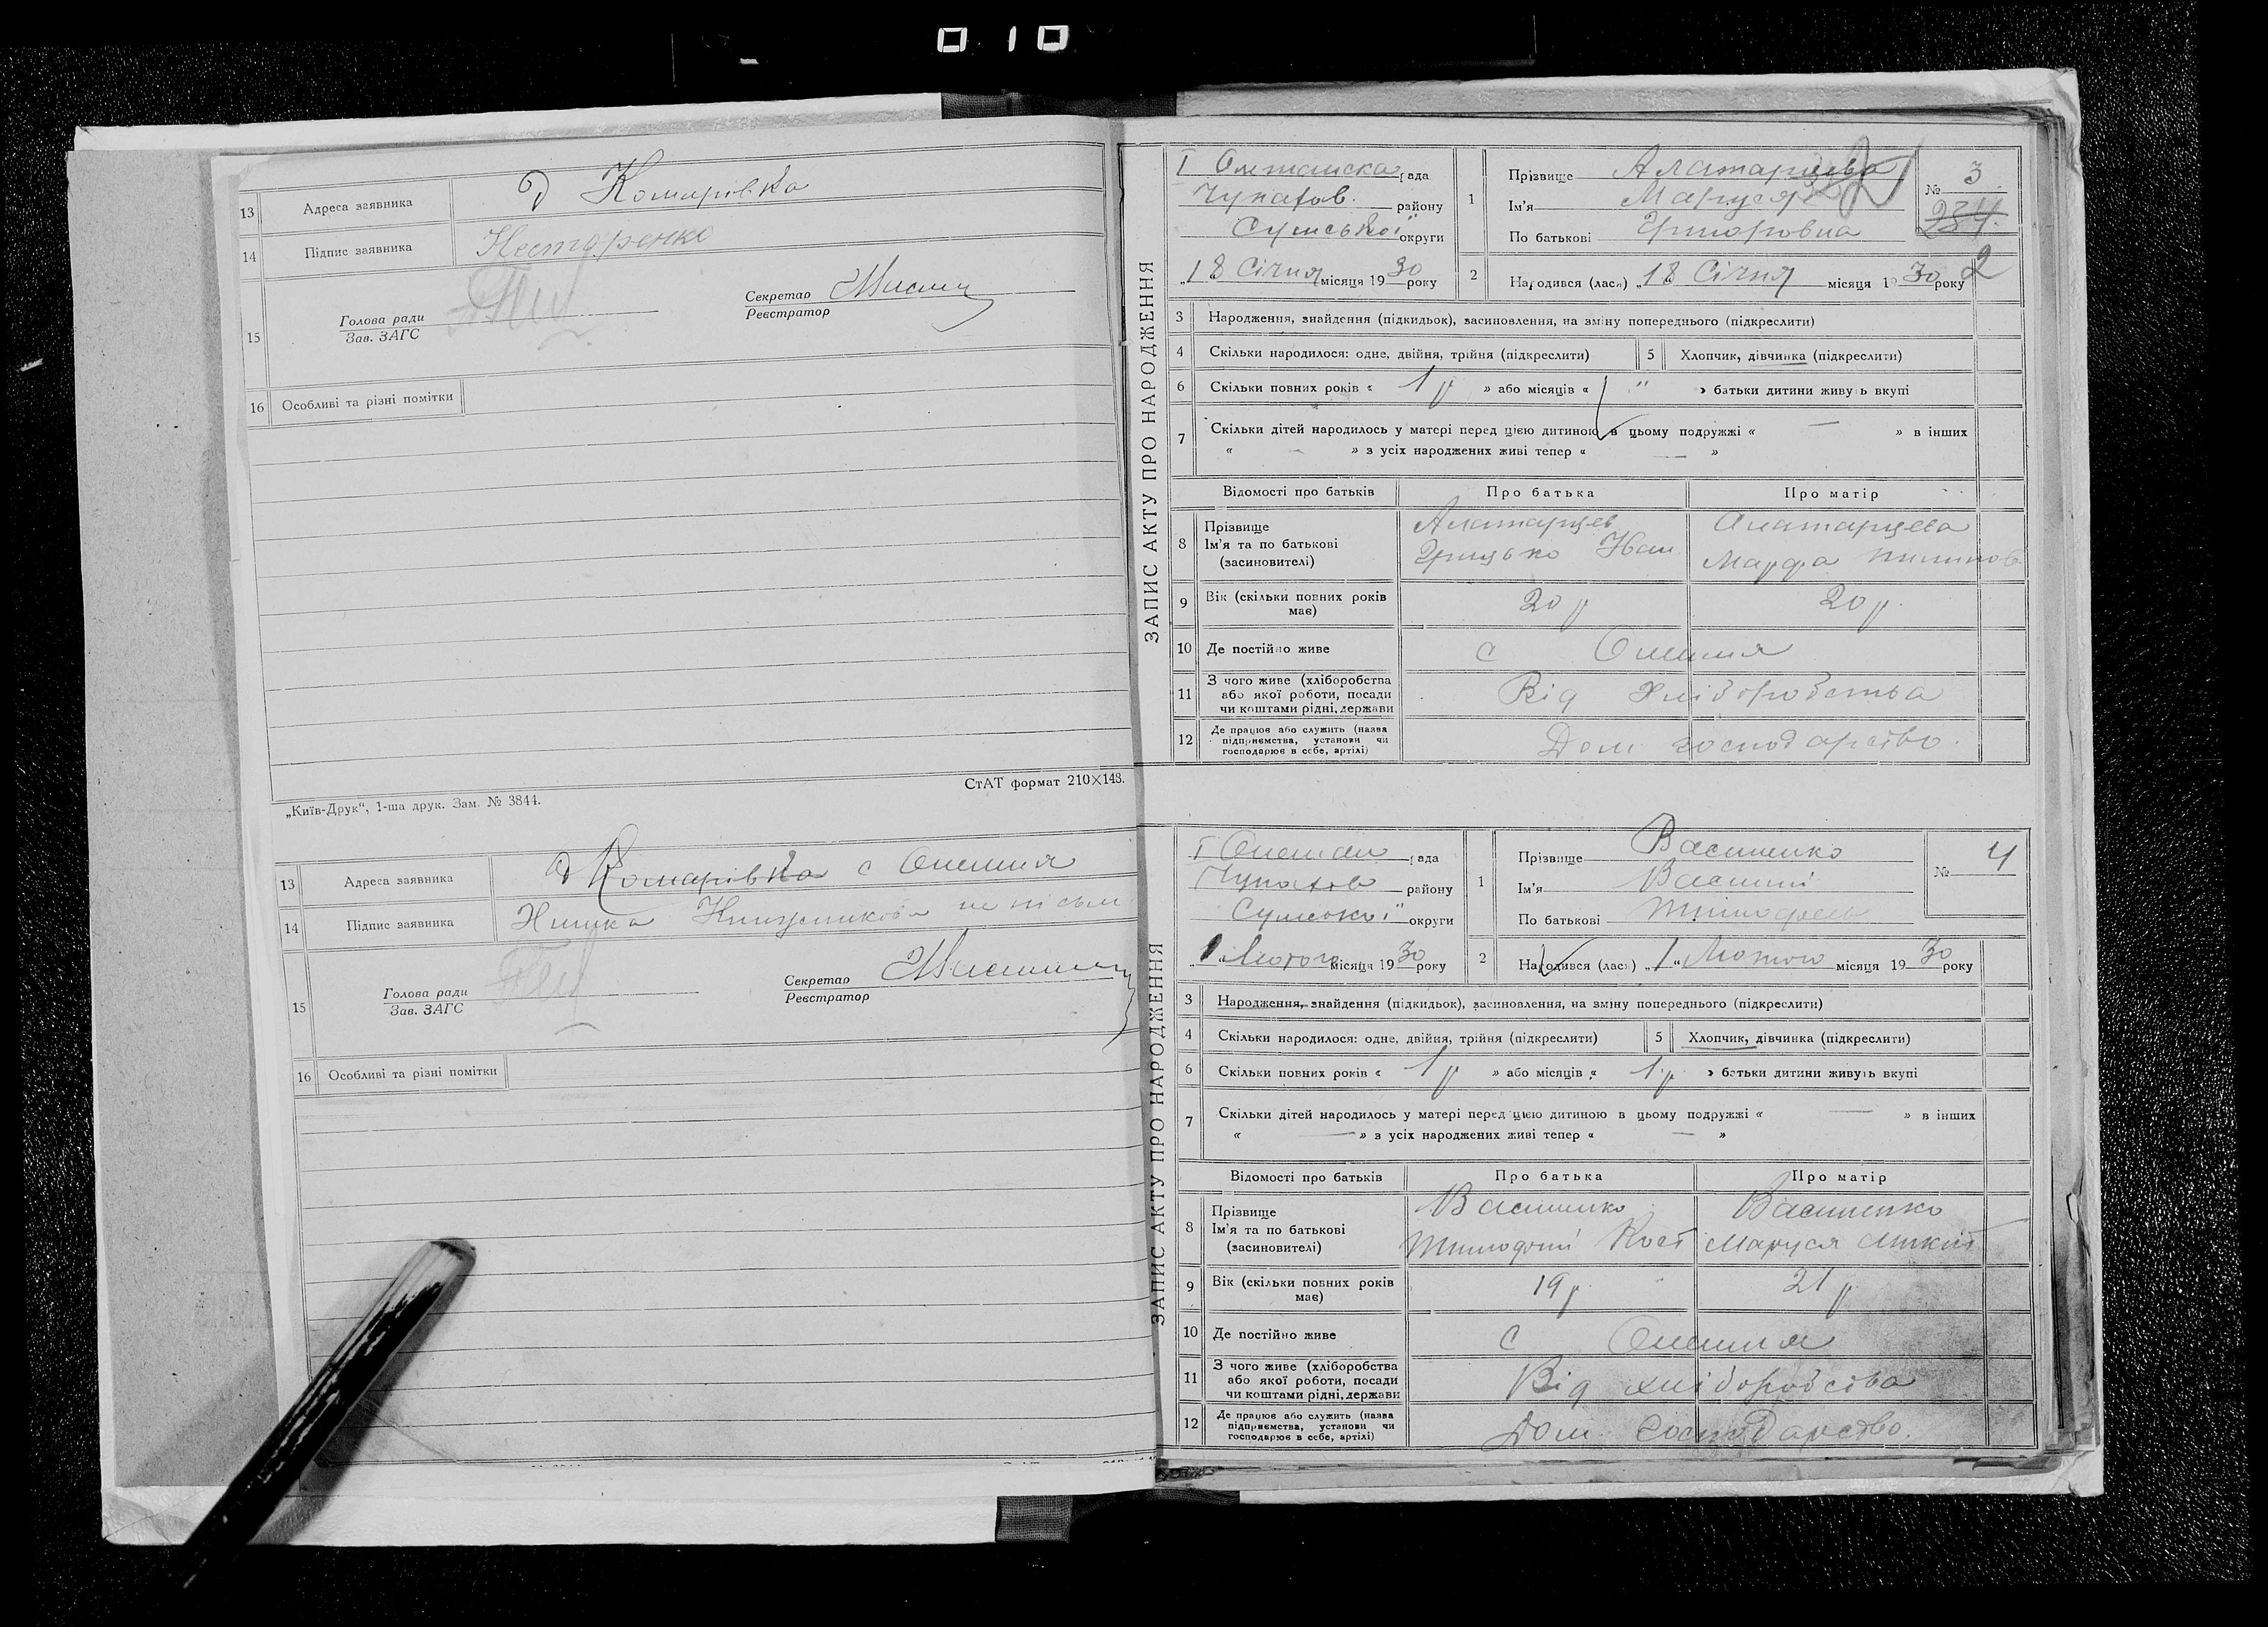 010
13 Адреса заявника д Комаровка
14 Підпис заявника Нестеренко
15 Голова ради Секретар
Зав. ЗАГС Реєстратор
16 Особливі та різні помітки
„Київ-Друк“, 1-ша друк. Зам. № 3844.
СтАТ формат 210Х148.
13 Адреса заявника д Комарівка с Олешня
14 Підпис заявника
15 Голова ради Секретар
Зав. ЗАГС Реєстратор
16 Особливі та різні помітки
ЗАПИС АКТУ ПРО НАРОДЖЕННЯ
І Олешанска рада
Чупахов. району
Сумської округи
„18 Січня місяця 1930 року
1 Прізвище Алатарцева
Ім'я Маруся
По батькові Григоровна
№ 3
234.
2
2 Народився (лась) „18 Січня місяця 1930 року
3 Народження, знайдення (підкидьок), засиновлення, на зміну попереднього (підкреслити)
4 Скільки народилося: одне, двійня, трійня (підкреслити) 5 Хлопчик, дівчинка (підкреслити)
6 Скільки повних років « 1 р » або місяців « " » батьки дитини живуть вкупі
7 Скільки дітей народилось у матері перед цією дитиною в цьому подружжі « — » в інших
« — » з усіх народжених живі тепер « — »
Відомості про батьків Про батька Про матір
8 Прізвище Алатарцев Алатарцева
Ім'я та по батькові Грицько Иван Марфа
(засиновителі)
9 Вік (скільки повних років має) 20 р 20 р.
10 Де постійно живе с Олешня
11 З чого живе (хліборобства або якої роботи, посади чи коштами рідні, держави Від Хліборобства
12 Де працює або служить (назва підприємства, установи чи господарює в себе, артілі) Дом господарство.
ЗАПИС АКТУ ПРО НАРОДЖЕННЯ
І Олешан рада
Чупахов району
Сумської округи
„1“ Лютого місяця 1930 року
1 Прізвище Василенко
Ім'я Василь
По батькові Тимофеев
№ 4
2 Народився (лась) „1“ Лютого місяця 1930 року
3 Народження, знайдення (підкидьок), засиновлення, на зміну попереднього (підкреслити)
4 Скільки народилося: одне, двійня, трійня (підкреслити) 5 Хлопчик, дівчинка (підкреслити)
6 Скільки повних років « 1 р » або місяців « 1 р » батьки дитини живуть вкупі
7 Скільки дітей народилось у матері перед цією дитиною в цьому подружжі « — » в інших
« — » з усіх народжених живі тепер « — »
Відомості про батьків Про батька Про матір
8 Прізвище Василенко Василенко
Ім'я та по батькові Тимофій Кост Маруся Микит
(засиновителі)
9 Вік (скільки повних років має) 19 р 21 р
10 Де постійно живе с Олешня
11 З чого живе (хліборобства або якої роботи, посади чи коштами рідні, держави Від хліборобства
12 Де працює або служить (назва підприємства, установи чи господарює в себе, артілі) Дом господарство.